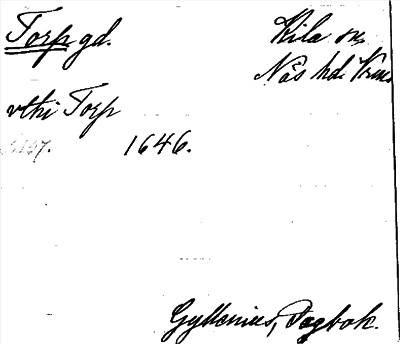 Torp gd.
Kila sn,
Näs hd. Vrml.
vthi Torp
s. 157. 1646.
Gyllenius, Dagbok.